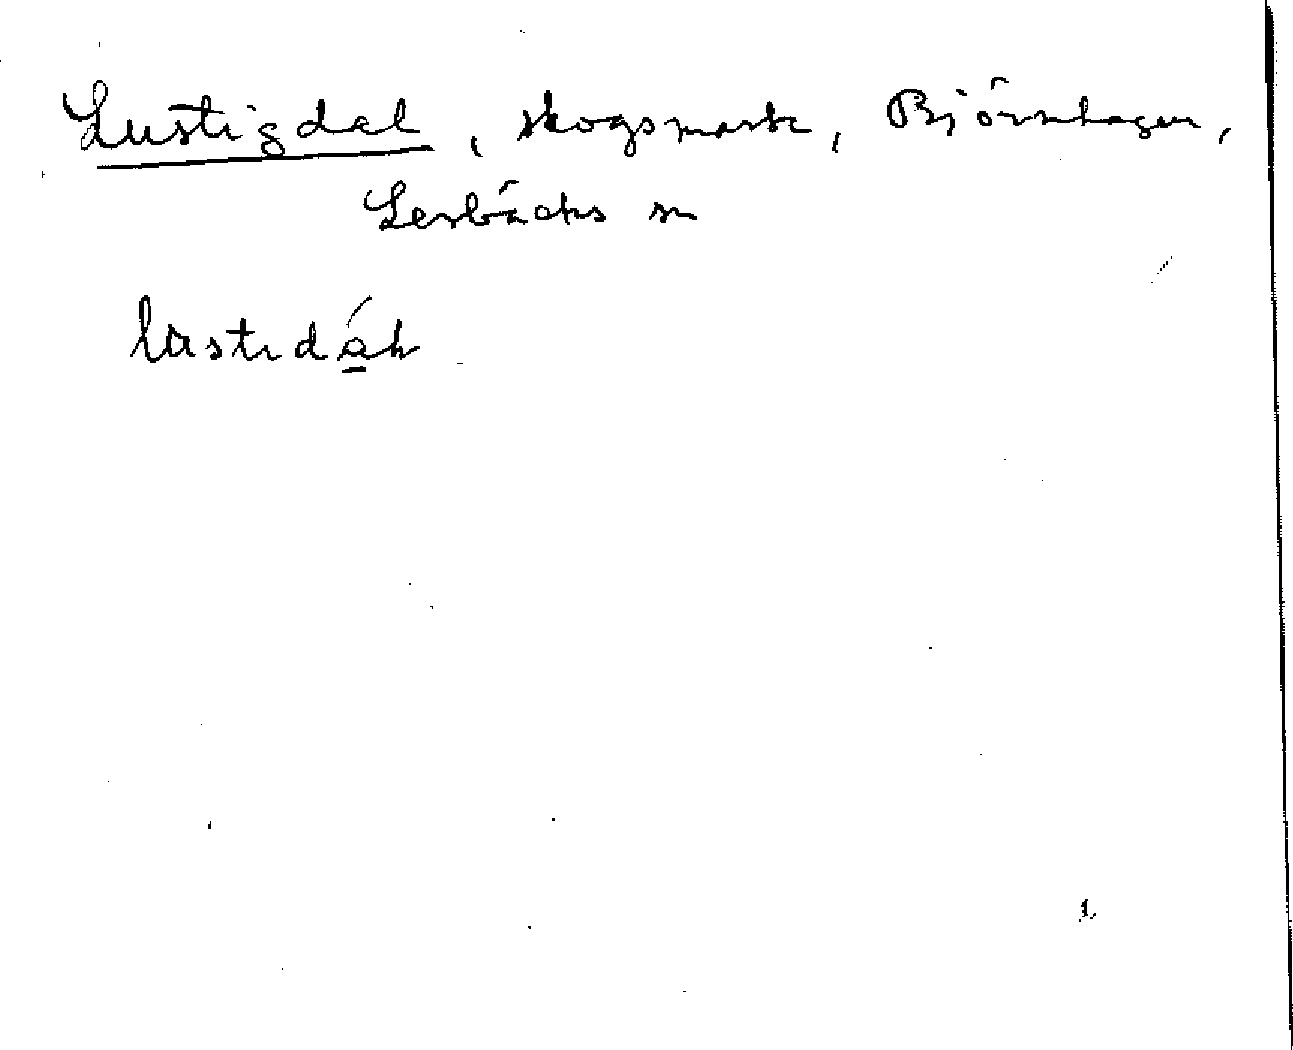 Lustigdal, skogsmark, Björnhagen,
Lerbäcks sn
lustidál
1